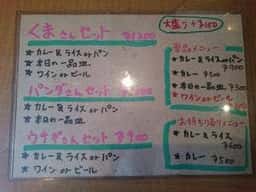 くまさんセット ¥1200
★ カレー&ライス or パン
★ 本日の一品皿
★ ワイン or ビール
パンダさんセット
★ カレー&ライス or パン
★ 本日の一品皿
ウサギさんセット ¥900
★ カレー&ライス or パン
★ ワイン or ビール
大盛り +¥100
単品メニュー
★ カレー&ライス or パン
★ カレー ¥500
★ 本日の一品皿
★ ワイン or ビール
お持ち帰りメニュー
★ カレー&ライス
¥600
★ カレー ¥500